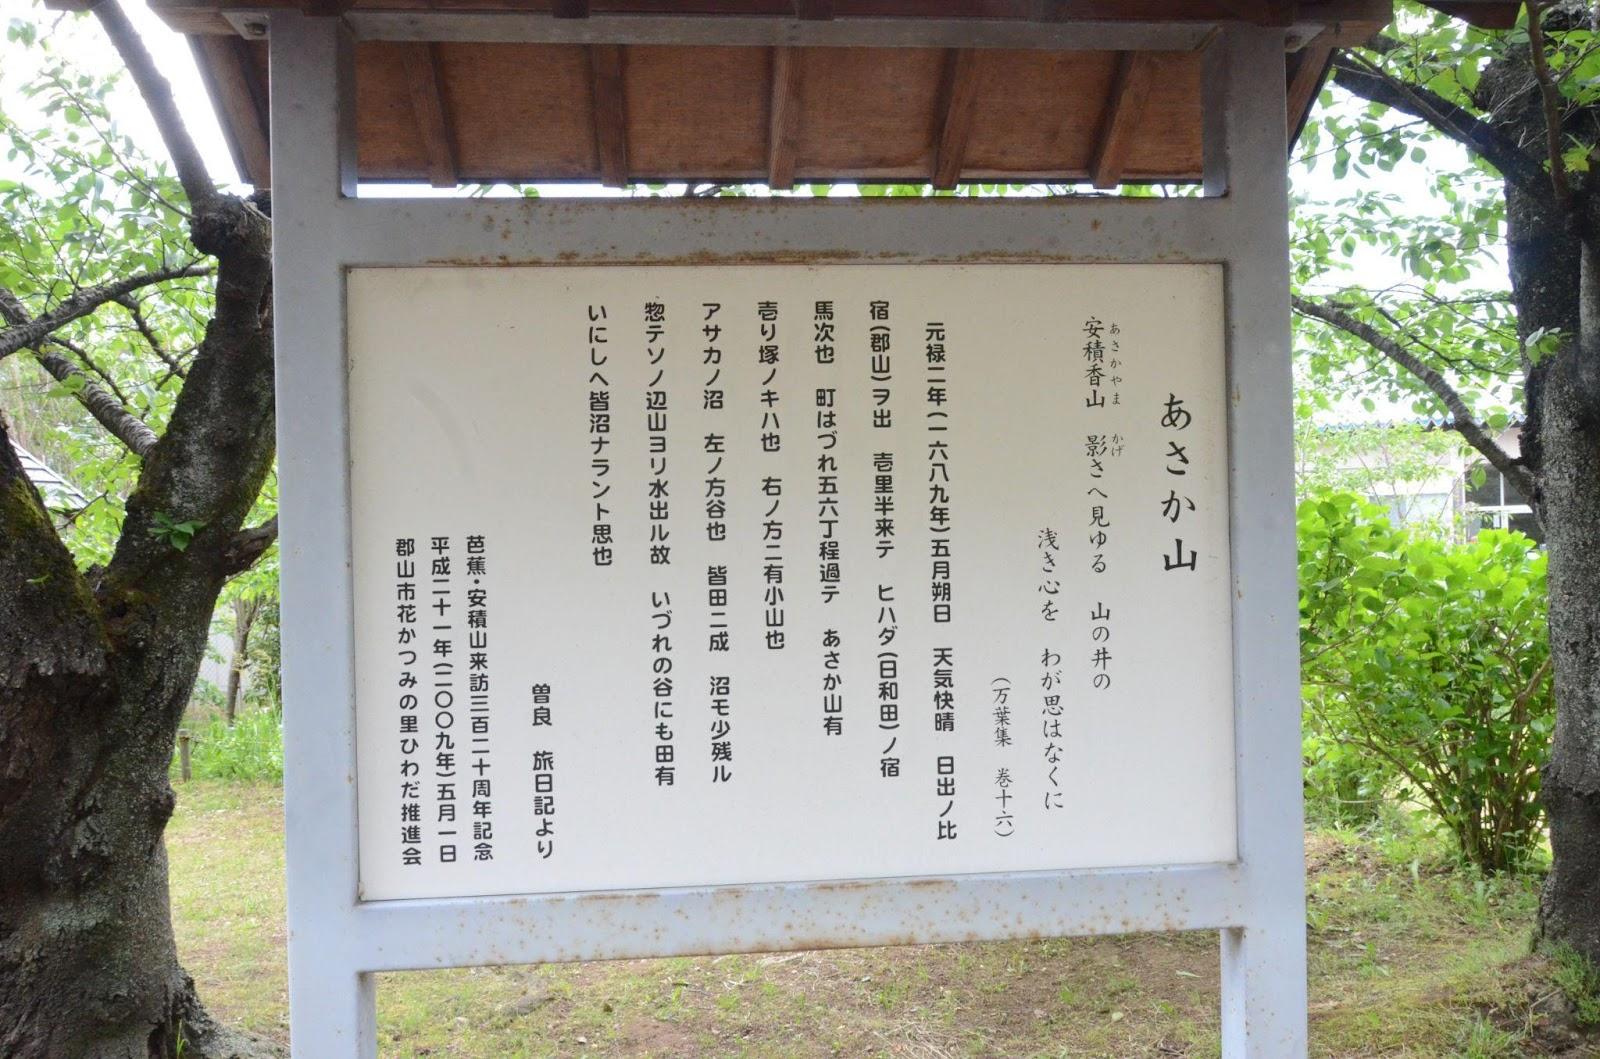 あさか山
安積香山　影さへ見ゆる　山の井の
あさかやま　かげ
浅き心を　わが思はなくに
（万葉集　巻十六）
元禄二年(一六八九年)五月朔日　天気快晴　日出ノ比
宿(郡山)ヲ出　壱里半来テ　ヒハダ(日和田)ノ宿
馬次也　町はづれ五六丁程過テ　あさか山有
壱り塚ノキハ也　右ノ方ニ有小山也
アサカノ沼　左ノ方谷也　皆田ニ成　沼モ少残ル
惣テソノ辺山ヨリ水出ル故　いづれの谷にも田有
いにしへ皆沼ナラント思也
曽良　旅日記より
芭蕉・安積山来訪三百二十周年記念
平成二十一年(二〇〇九年)五月一日
郡山市花かつみの里ひわだ推進会